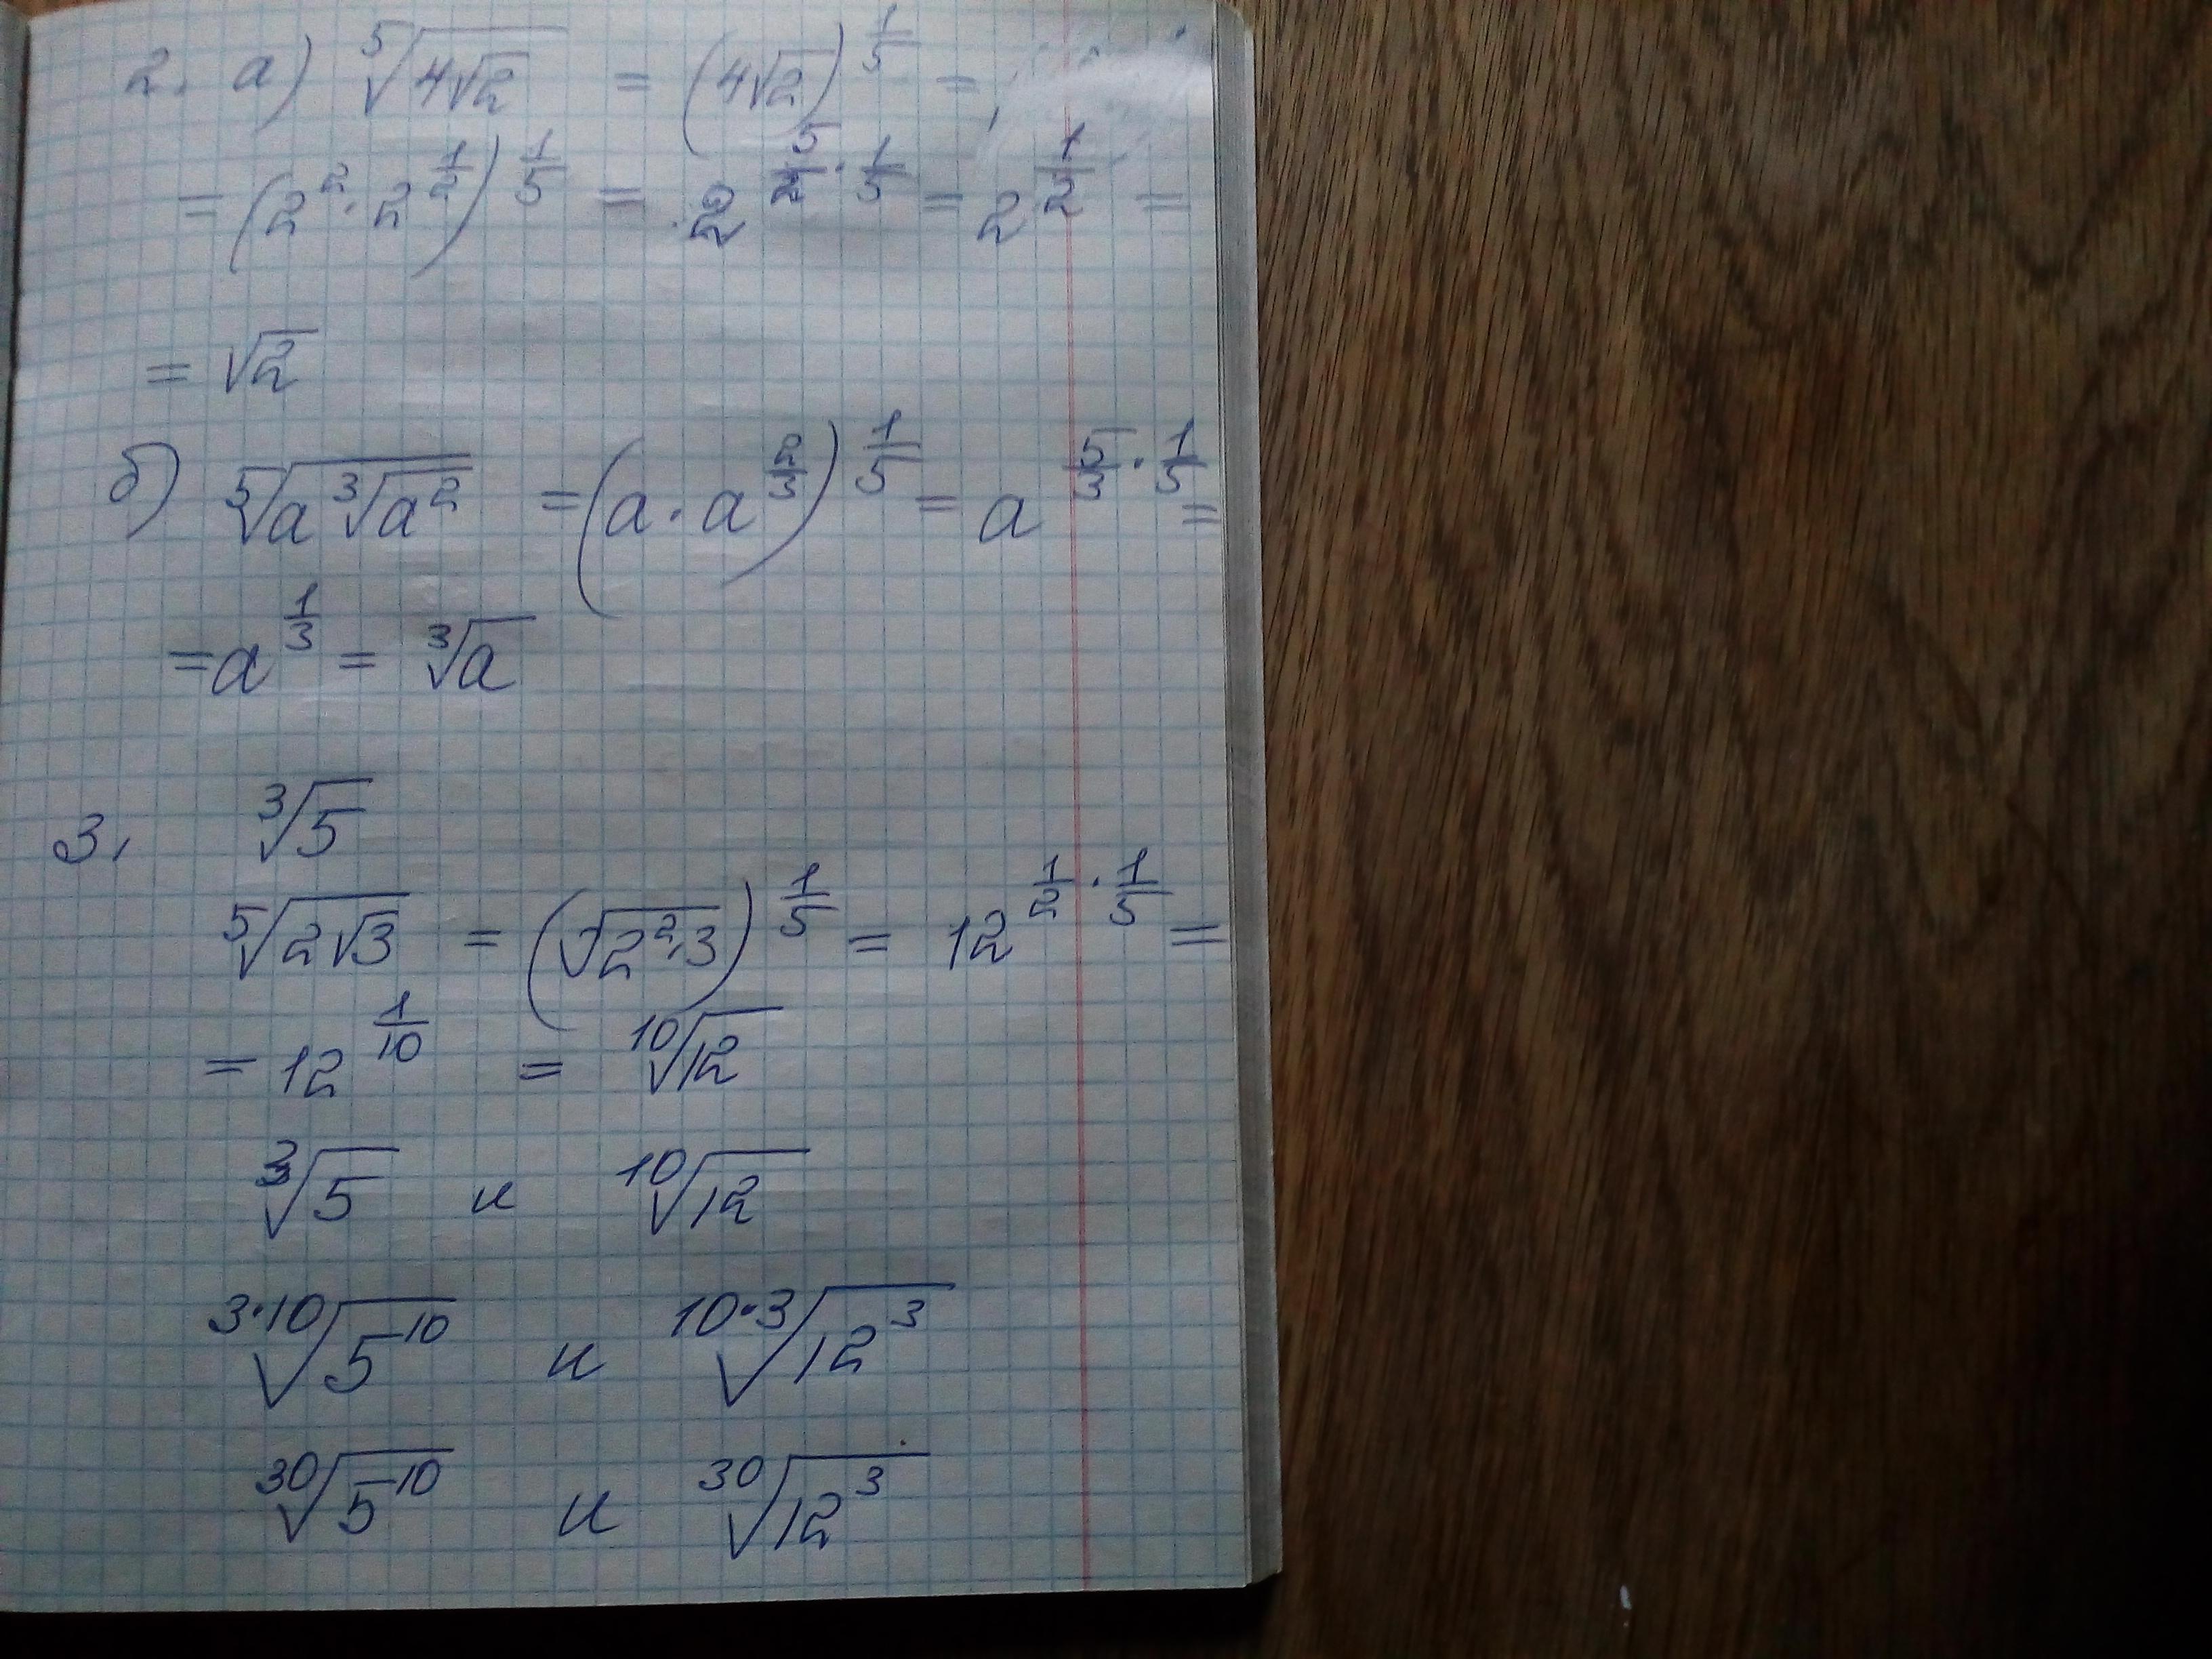 2. а) ⁵√(4√2) = (4√2)^(1/5) =
= (2² · 2^(1/2))^(1/5) = 2^(5/2 · 1/5) = 2^(1/2) =
= √2
б) ⁵√(a ³√(a²)) = (a · a^(2/3))^(1/5) = a^(5/3 · 1/5) =
= a^(1/3) = ³√a
3, ³√5
⁵√(2√3) = (√(2² · 3))^(1/5) = 12^(1/2 · 1/5) =
= 12^(1/10) = ¹⁰√12
³√5 и ¹⁰√12
³·¹⁰√(5¹⁰) и ¹⁰·³√(12³)
³⁰√(5¹⁰) и ³⁰√(12³)